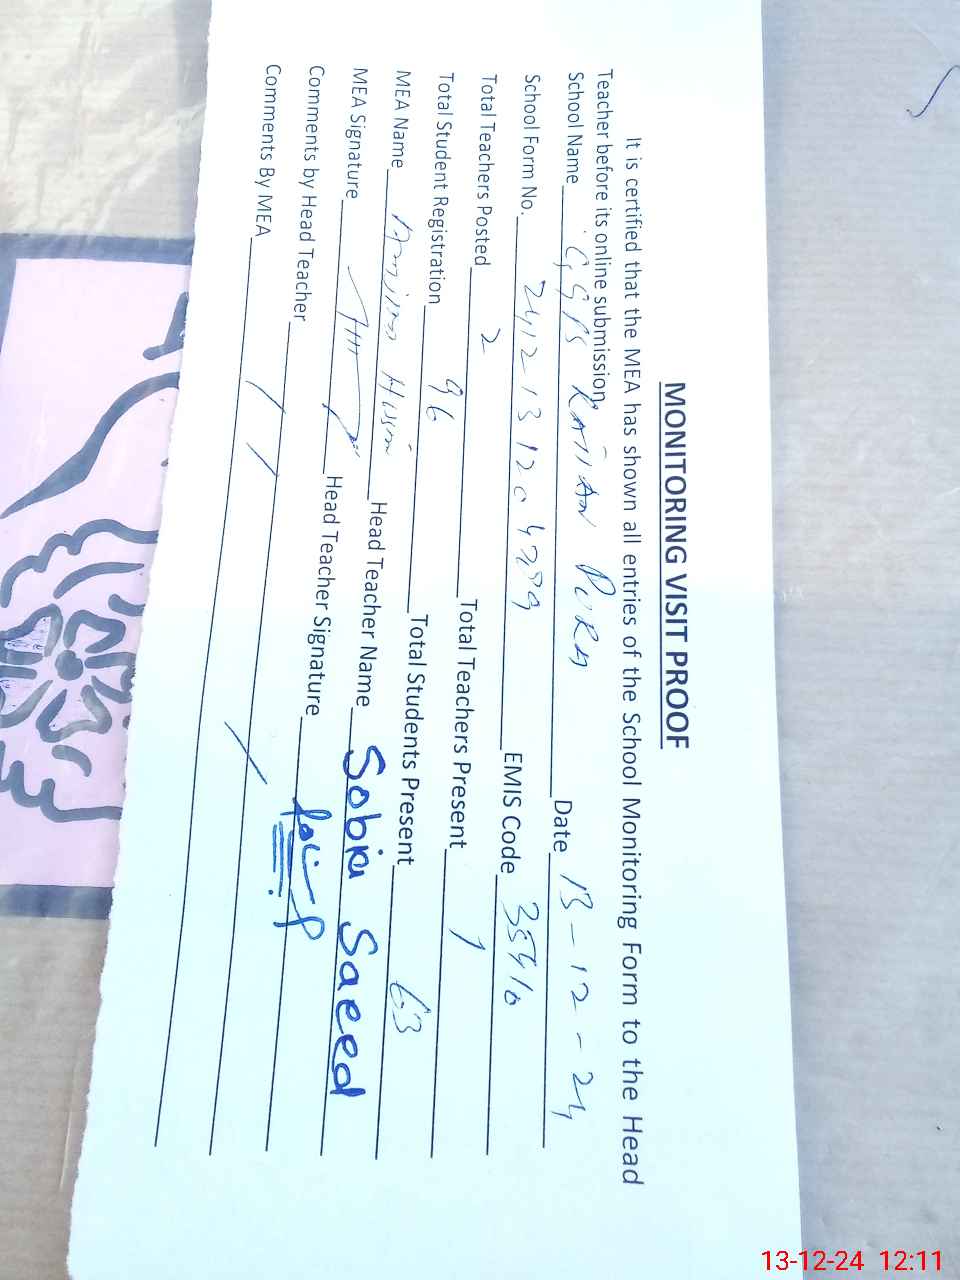 MONITORING VISIT PROOF
It is certified that the MEA has shown all entries of the School Monitoring Form to the Head
Teacher before its online submission.
School Name GGPS PURA Date 13-12-24
School Form No. EMIS Code 35410
Total Teachers Posted 2 Total Teachers Present 1
Total Student Registration 96 Total Students Present 63
MEA Name Head Teacher Name Sobia Saeed
MEA Signature Head Teacher Signature
Comments by Head Teacher
Comments By MEA
13-12-24 12:11